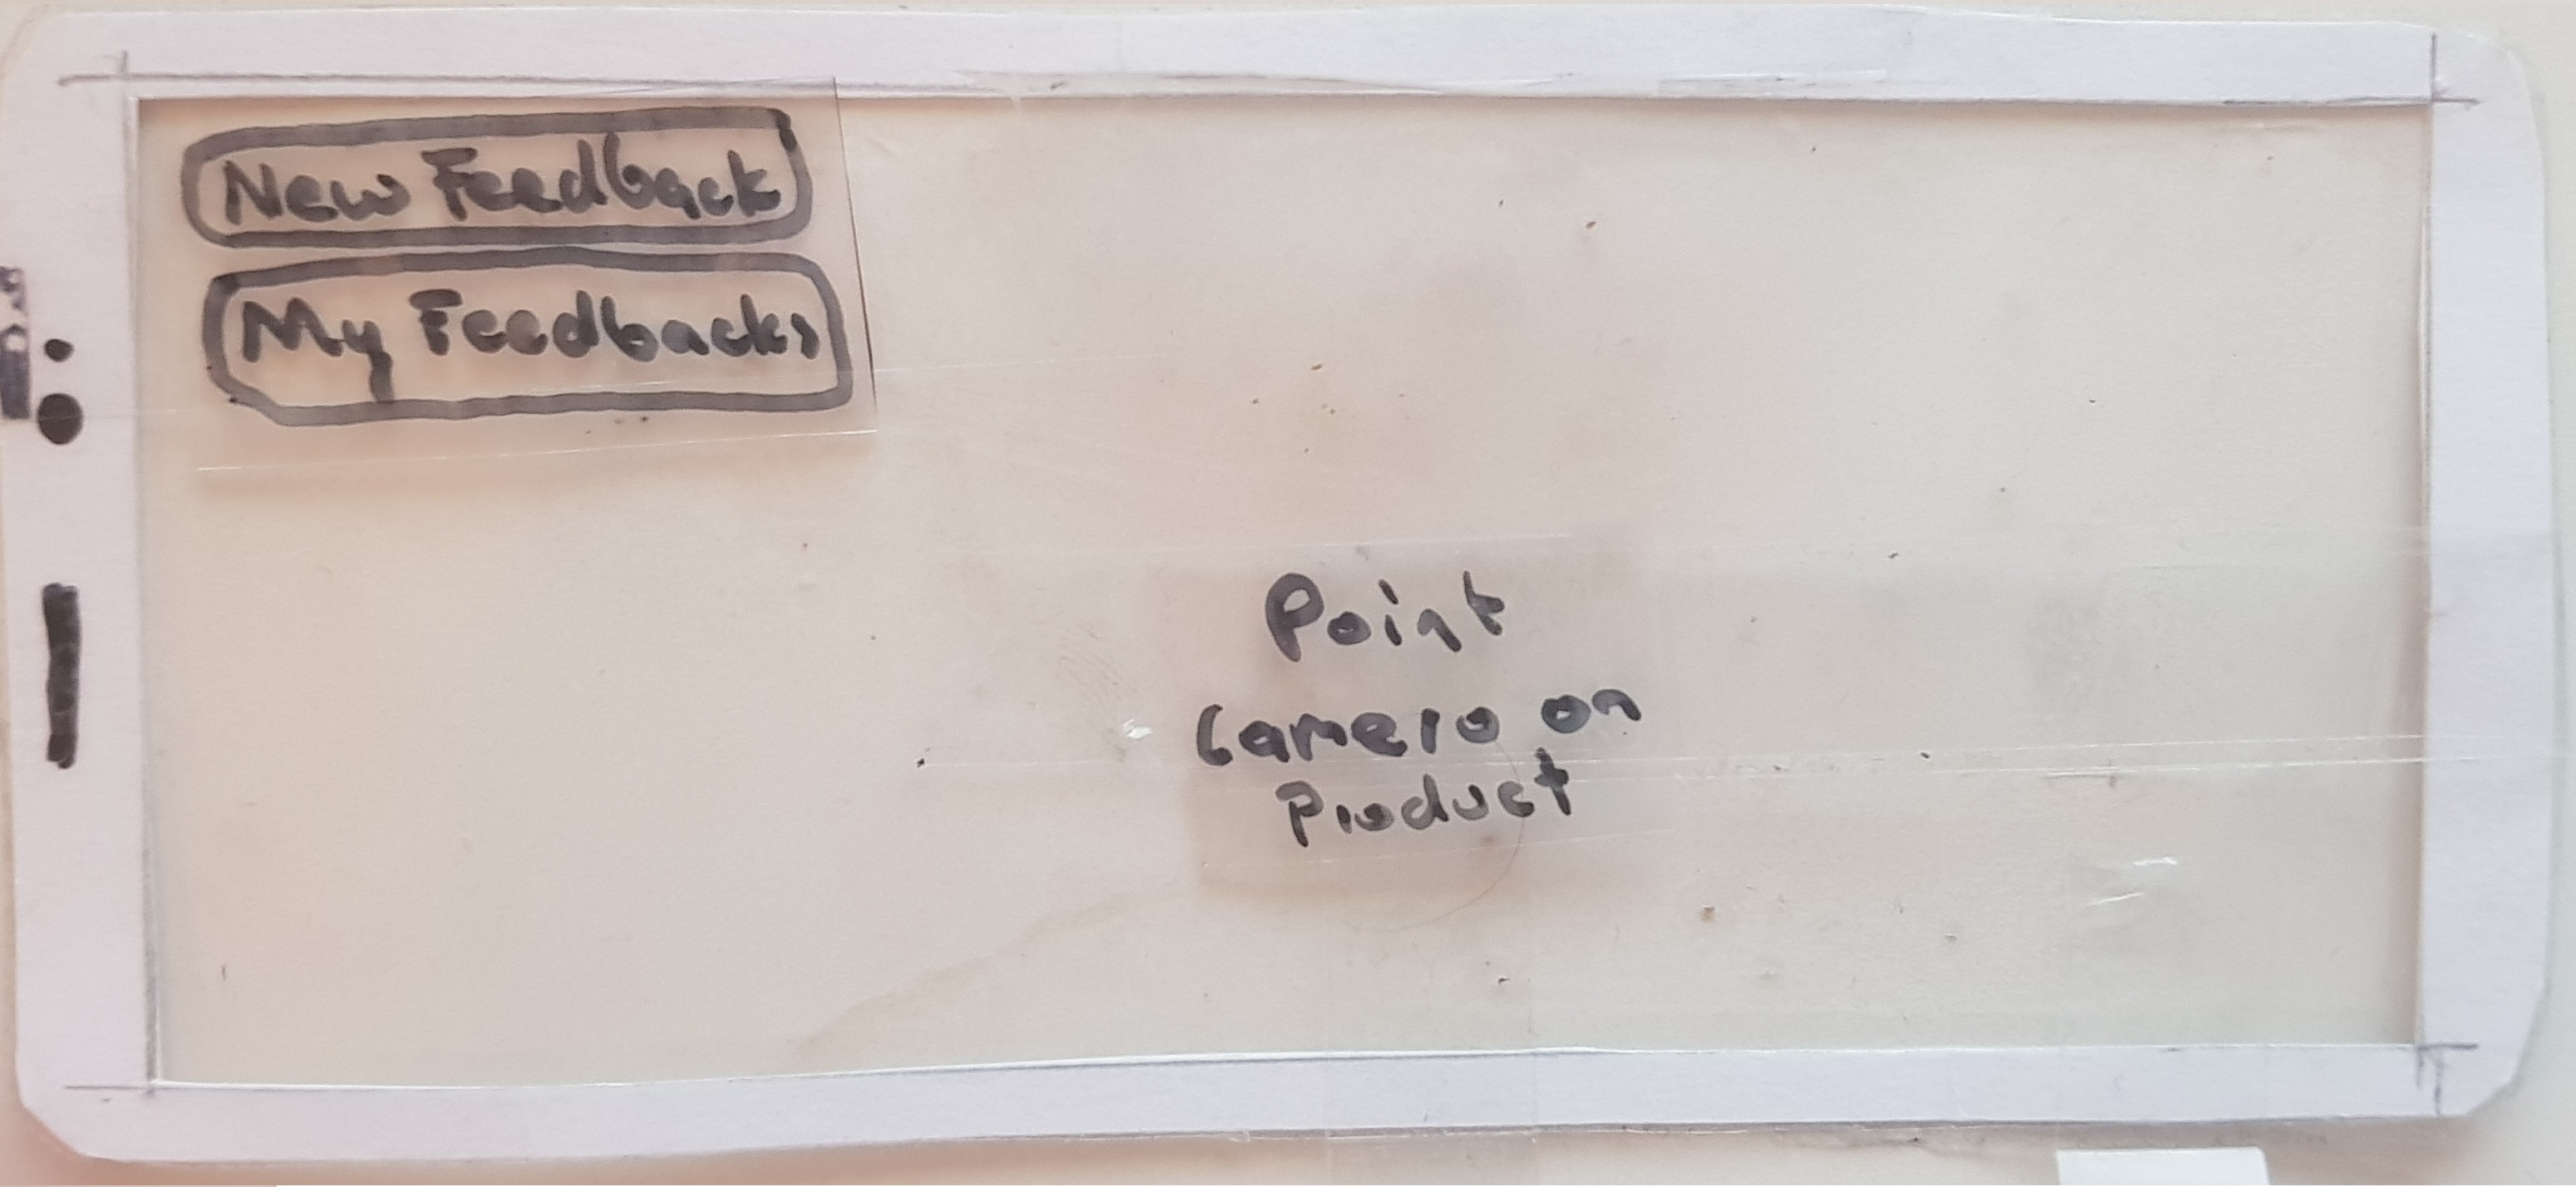 New Feedback
My Feedbacks
Point
Camera on
Product